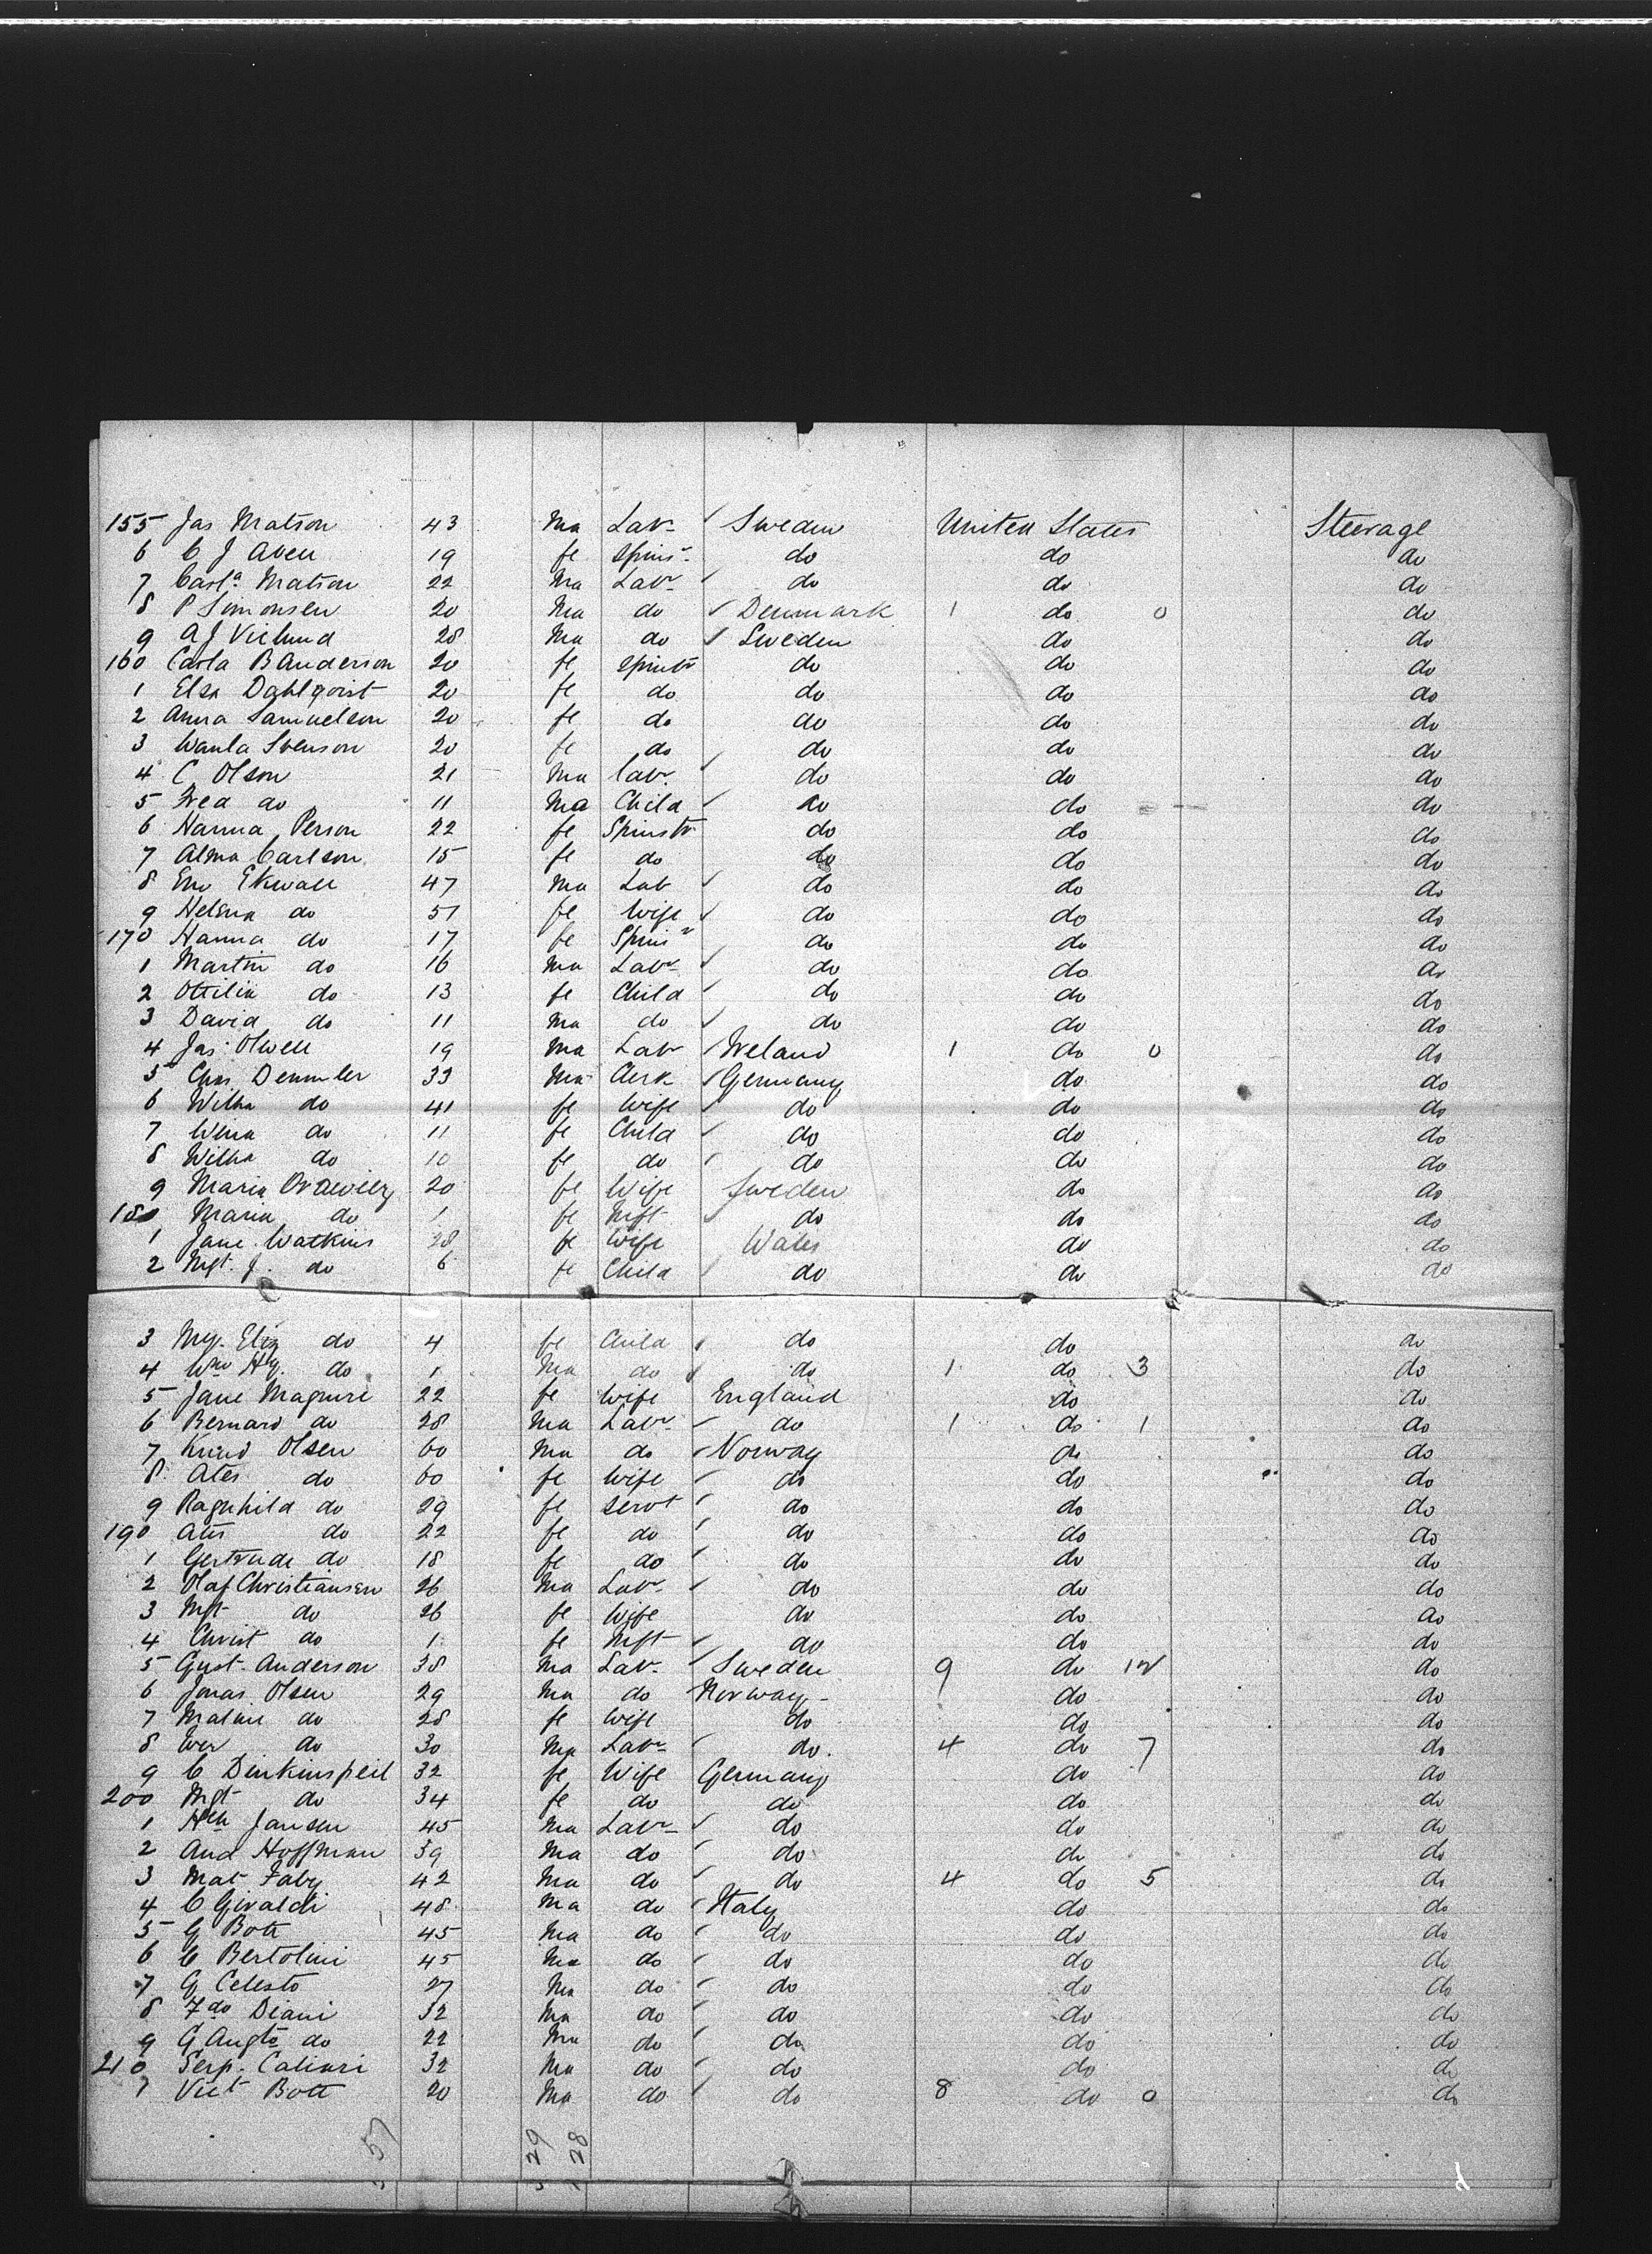 155 Jas Matson 43 Ma Labr Sweden United States Steerage
6 C J Aven 19 fe Spinsr do do do
7 Carla Matson 22 Ma Labr do do do
8 P Simonsen 20 Ma do Denmark 1 do 0 do
9 A J Viclund 28 Ma do Sweden do do
160 Carla B Anderson 20 fe Spinstr do do do
1 Elsa Dahlqvist 20 fe do do do do
2 Anna Samuelson 20 fe do do do do
3 Svenson 20 fe do do do do
4 C Olson 21 Ma labr do do do
5 Fred do 11 Ma Child do do do
6 Hanna Person 22 fe Spinstr do do do
7 Alma Carlson 15 fe do do do do
8 Ekwall 47 Ma Lab do do do
9 Helena do 51 fe Wife do do do
170 Hanna do 17 fe Spinsr do do do
1 Martin do 16 Ma Labr do do do
2 Ottilia do 13 fe Child do do do
3 David do 11 Ma do do do do
4 Jas Olwell 19 Ma Labr Ireland 1 do 0 do
5 Chas Demmler 33 Ma Clerk Germany do do
6 Wilha do 41 fe Wife do do do
7 do 11 fe Child do do do
8 Wilha do 10 fe do do do do
9 Maria 20 fe Wife Sweden do do
180 Maria do 1 fe Inft do do do
1 Jane Watkins 28 fe Wife Wales do do
2 Mgt. J. do 6 fe Child do do do
3 My. Eliz do 4 fe Child do do do
4 Wm Hy. do 1 Ma do do 1 do 3 do
5 Jane Maguire 22 fe Wife England do do
6 Bernard do 28 Ma Labr do 1 do 1 do
7 Knud Olsen 60 Ma do Norway do do
8 Ates do 60 fe Wife do do do
9 Ragnhild do 29 fe Servt do do do
190 Ates do 22 fe do do do do
1 Gertrude do 18 fe do do do do
2 Olaf Christiansen 26 Ma Labr do do do
3 Mgt do 26 fe Wife do do do
4 Christ do 1 fe Inft do do do
5 Gust. Anderson 38 Ma Labr Sweden 9 do 12 do
6 Jonas Olsen 29 Ma do Norway do do
7 Malin do 28 fe Wife do do do
8 Iver do 30 Ma Labr do. 4 do 7 do
9 C Dinkinspeil 32 fe Wife Germany do do
200 Mgt do 34 fe do do do do
1 Hch Jansen 45 Ma Labr do do do
2 And Hoffman 39 Ma do do do do
3 Mat Faby 42 Ma do do 4 do 5 do
4 C Givaldi 48 Ma do Italy do do
5 G Bott 45 Ma do do do do
6 C Bertolini 45 Ma do do do do
7 G Celesto 27 Ma do do do do
8 Fdo Diani 32 Ma do do do do
9 G Augto do 22 Ma do do do do
210 Serp. Caliari 32 Ma do do do do
1 Vict Bott 20 Ma do do 8 do 0 do
57 29 28